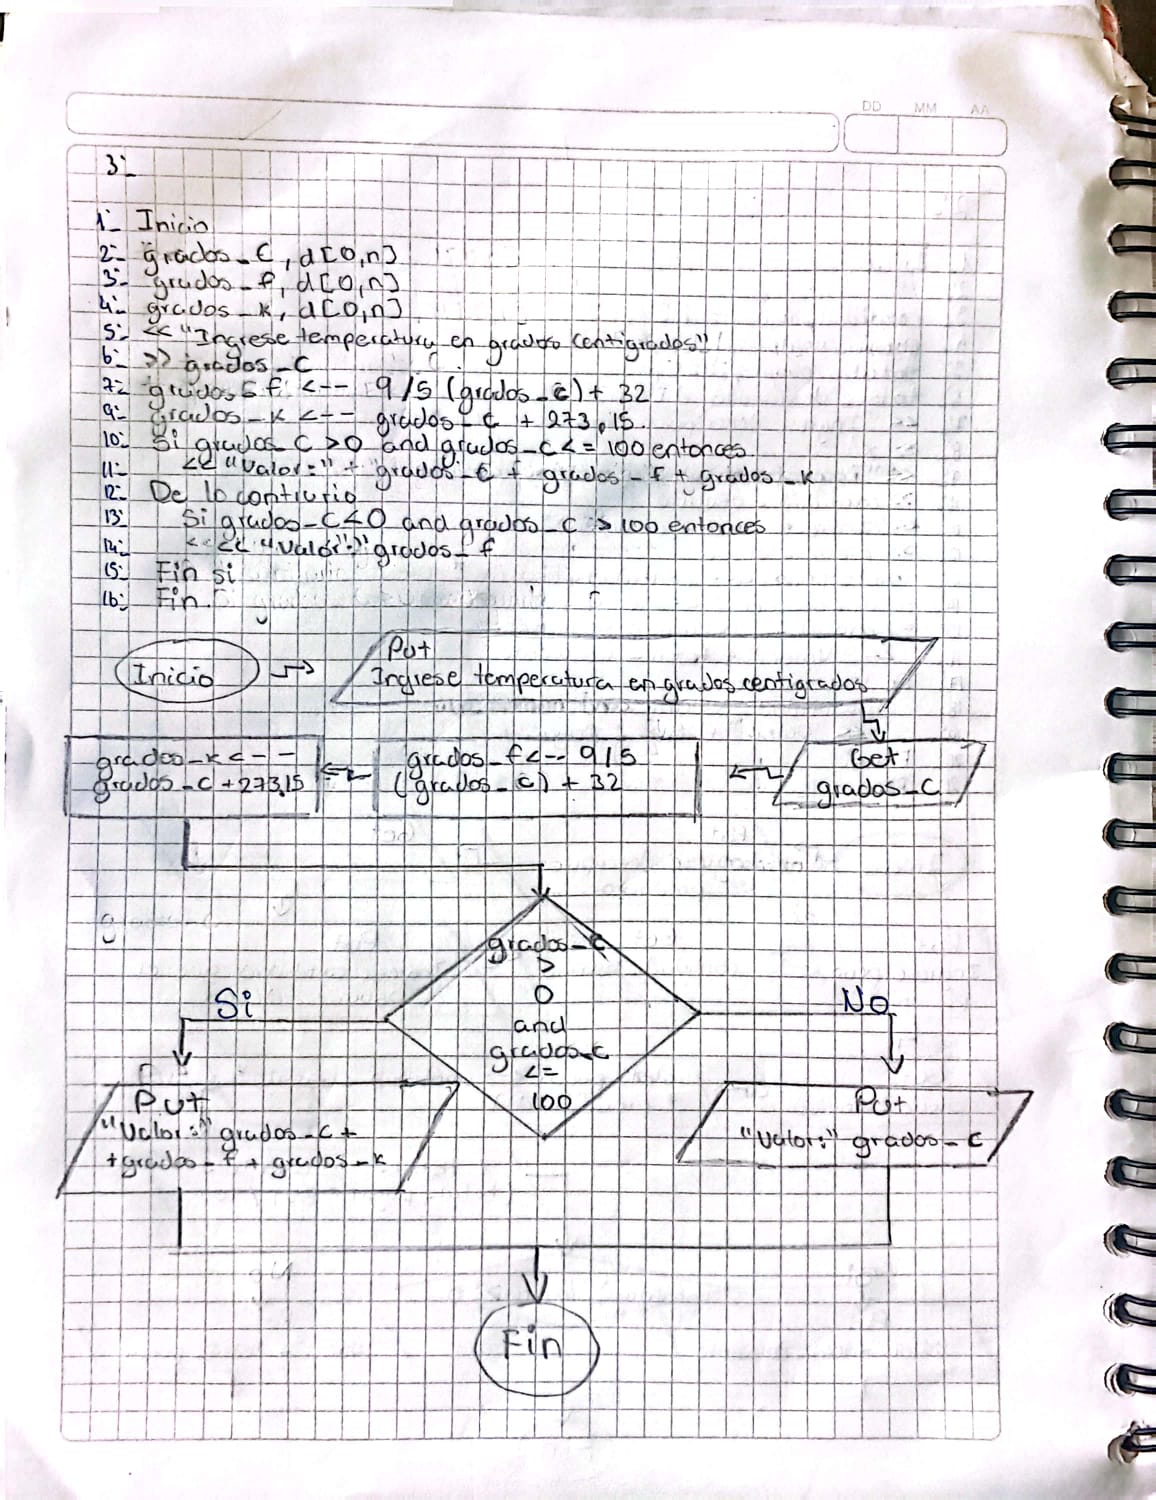 DD MM AA
3-
1- Inicio
2- grados_C, d[0,n]
3- grados_f, d[0,n]
4- grados_k, d[0,n]
5- << "Ingrese temperatura en grados centigrados"
6- >> grados_C
7- grados f <-- 9/5 (grados_c) + 32
9- grados_k <-- grados_c + 273,15.
10- Si grados_C >0 and grados_c <= 100 entonces
11- << "Valor:" + grados_C + grados_f + grados_k
12- De lo contrario
13- Si grados_C<0 and grados_c > 100 entonces
14- << "Valor:" grados_f
15- Fin si
16- Fin.
Inicio
Put
Ingrese temperatura en grados centigrados
Get:
grados_C
grados_f<-- 9/5
(grados_c) + 32
grados_k <--
grados_c + 273,15
grados_c
>
0
and
grados_c
<=
100
Si
No
Put
"Valor:" grados_c +
+grados_f + grados_k
Put
"Valor:" grados_c
Fin